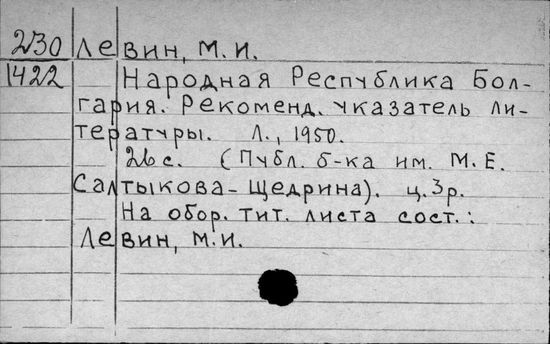 230 Левин, М.И.
1422 Народная Республика Бол-
гария. Рекоменд. указатель ли-
тературы. Л., 1950.
26 с. (Публ. б-ка им. М.Е.
Салтыкова-Щедрина). ц. 3 р.
На обор. тит. листа сост.:
Левин, М.И.